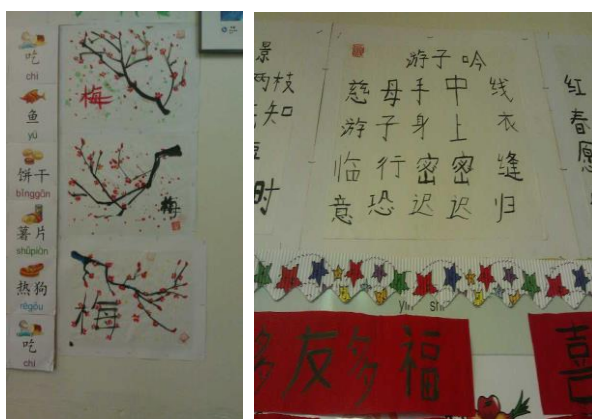 吃
chī
鱼
yú
饼干
bǐnggān
薯片
shǔpiàn
热狗
règǒu
吃
chī
梅
梅
梅
游子吟
慈母手中线
游子身上衣
临行密密缝
意恐迟迟归
枝
知
时
红
春
愿
友多福
喜